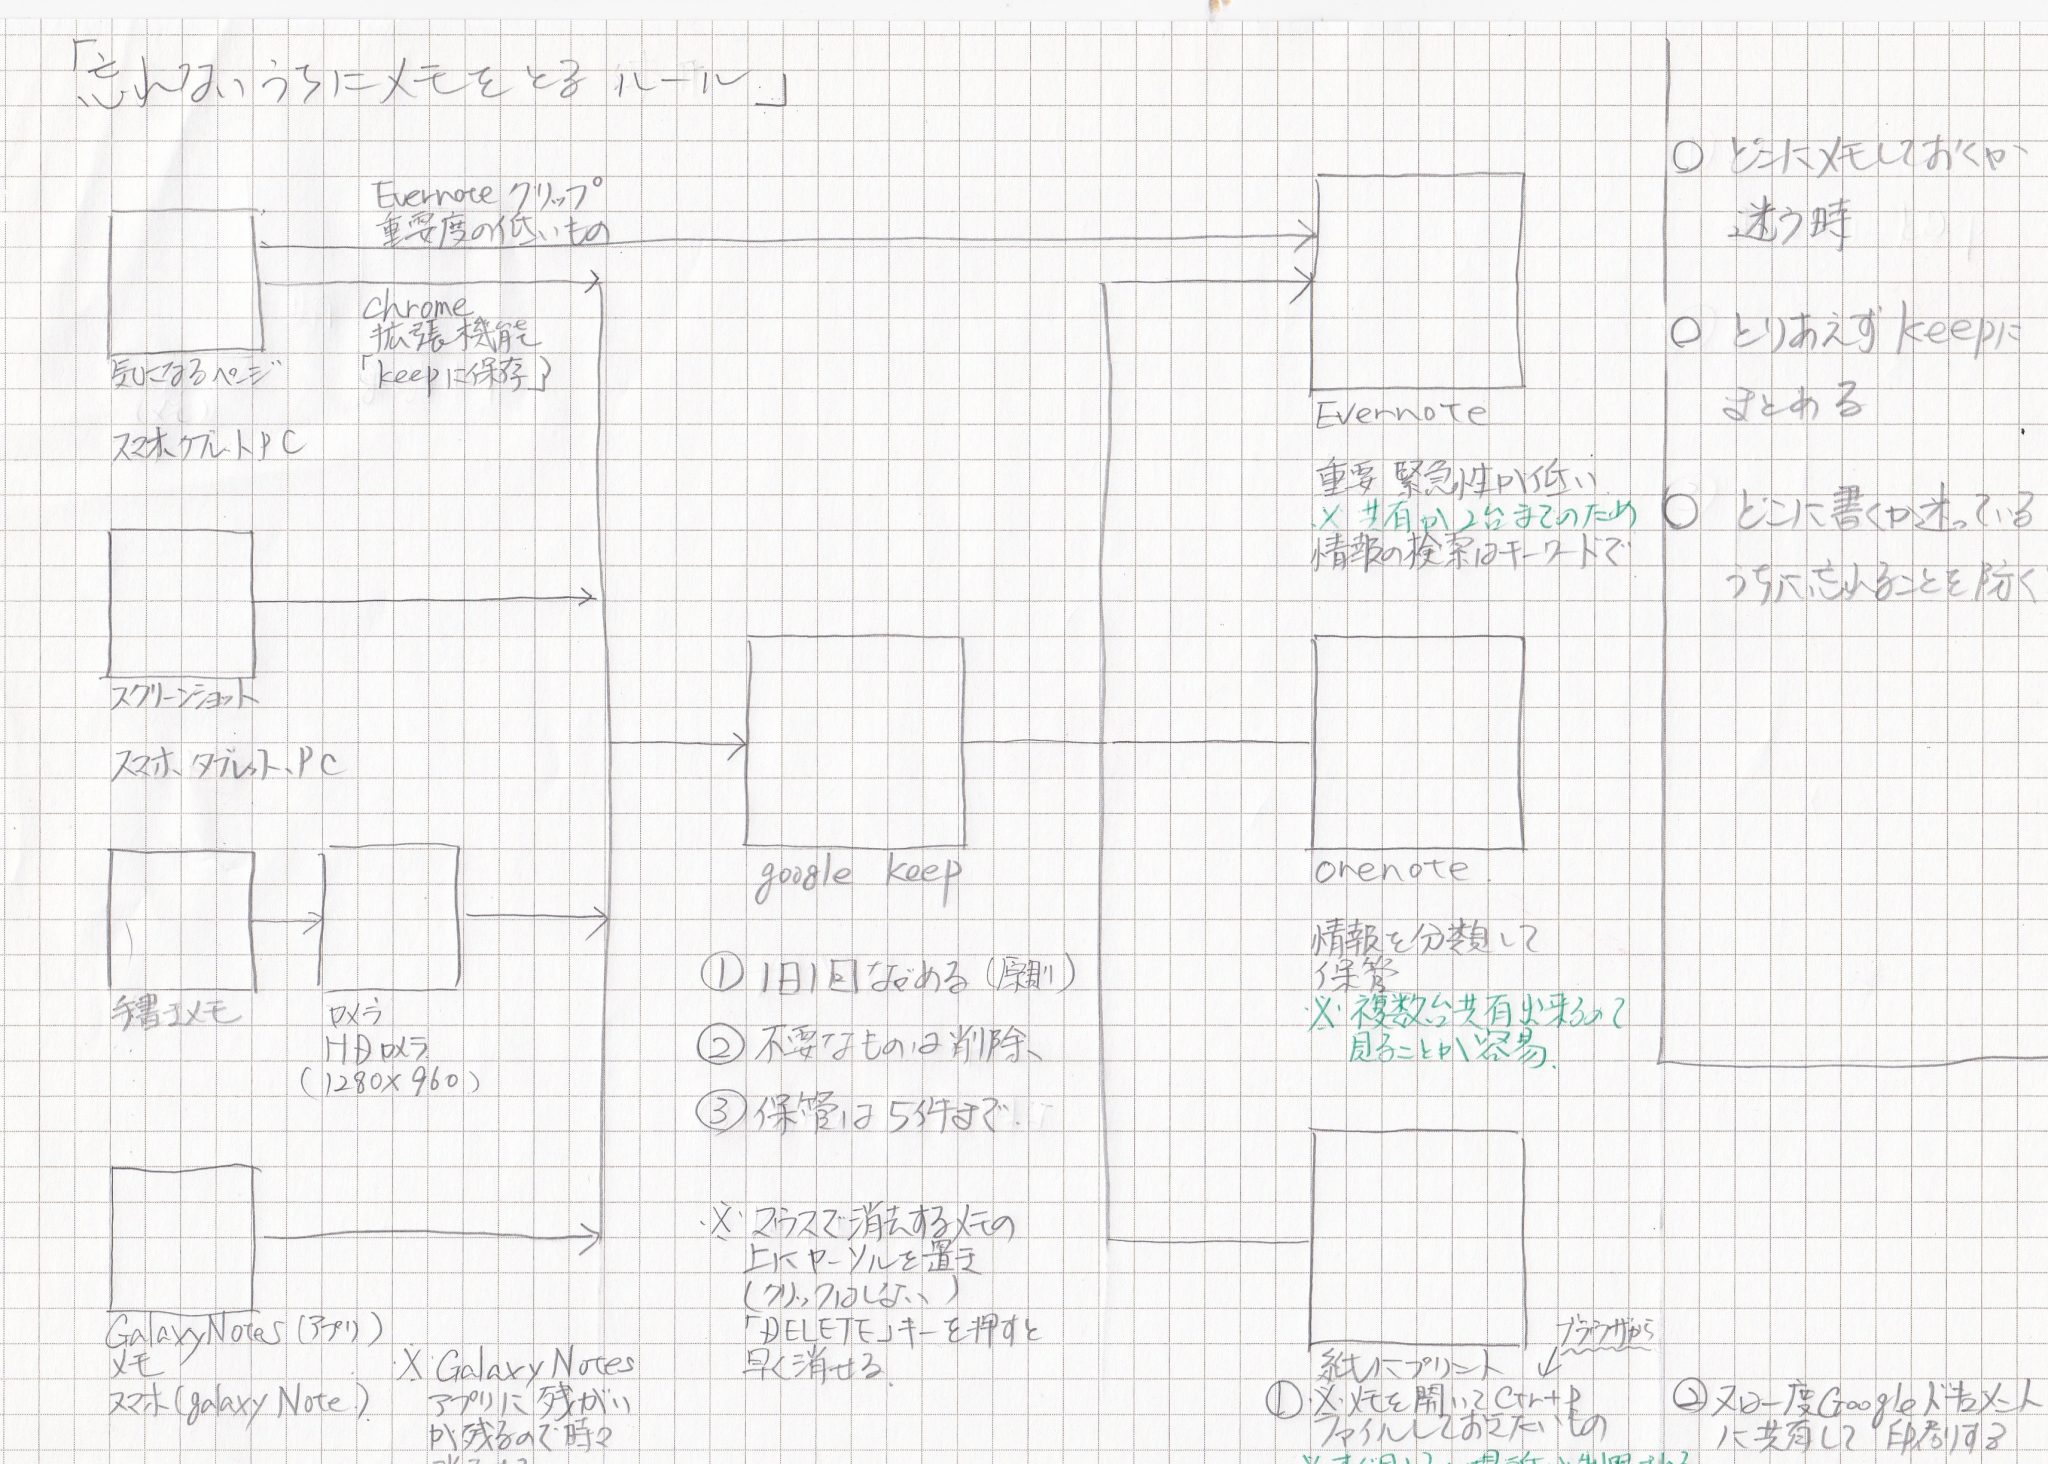 「忘れないうちにメモをとる ルール」
Evernote クリップ
重要度の低いもの
chrome
拡張機能
「keepに保存」
気になるページ
スマホ、タブレットPC
スクリーンショット
スマホ、タブレット、PC
手書きメモ
カメラ
HDカメラ
(1280×960)
GalaxyNotes (アプリ)
メモ
スマホ(galaxy Note)
※GalaxyNotes
アプリに残がい
が残るので時々
google keep
① 1日1回ながめる (原則)
② 不要なものは削除、
③ 保管は5件まで.
※ マウスで消去するメモの
上にカーソルを置き
(クリックはしない)
「DELETE」キーを押すと
早く消せる.
Evernote
重要 緊急性が低い
※ 共有が2台までのため
情報の検索はキーワードで
onenote.
情報を分類して
保管
※ 複数台共有出来るので
見ることが容易.
紙にプリント
ブラウザから
① ※メモを開いてCtr+P
ファイルしておきたいもの
② 又は一度Googleドキュメント
に共有して印刷する
○ どこにメモしておくか
迷う時
○ とりあえずkeepに
まとめる
○ どこに書くか迷っている
うちに忘れることを防ぐ